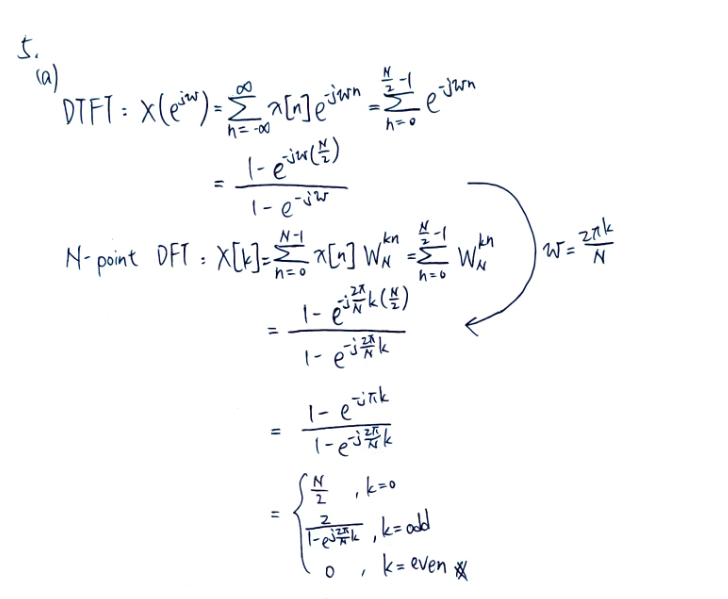 5.
(a)
DTFT : X(e^{jω}) = ∑_{n=-∞}^{∞} x[n] e^{-jωn} = ∑_{n=0}^{N/2 -1} e^{-jωn}
= (1 - e^{-jω(N/2)}) / (1 - e^{-jω})
N-point DFT : X[k] = ∑_{n=0}^{N-1} x[n] W_N^{kn} = ∑_{n=0}^{N/2 -1} W_N^{kn} ω = 2πk/N
= (1 - e^{-j(2π/N)k(N/2)}) / (1 - e^{-j(2π/N)k})
= (1 - e^{-jπk}) / (1 - e^{-j(2π/N)k})
= { N/2 , k=0
2 / (1 - e^{-j(2π/N)k}) , k=odd
0 , k=even